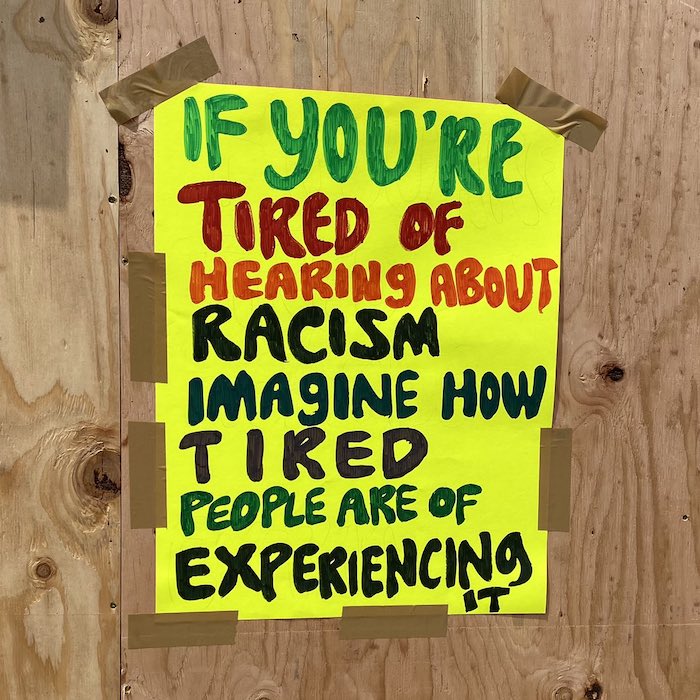 IF YOU'RE
TIRED OF
HEARING ABOUT
RACISM
IMAGINE HOW
TIRED
PEOPLE ARE OF
EXPERIENCING
IT